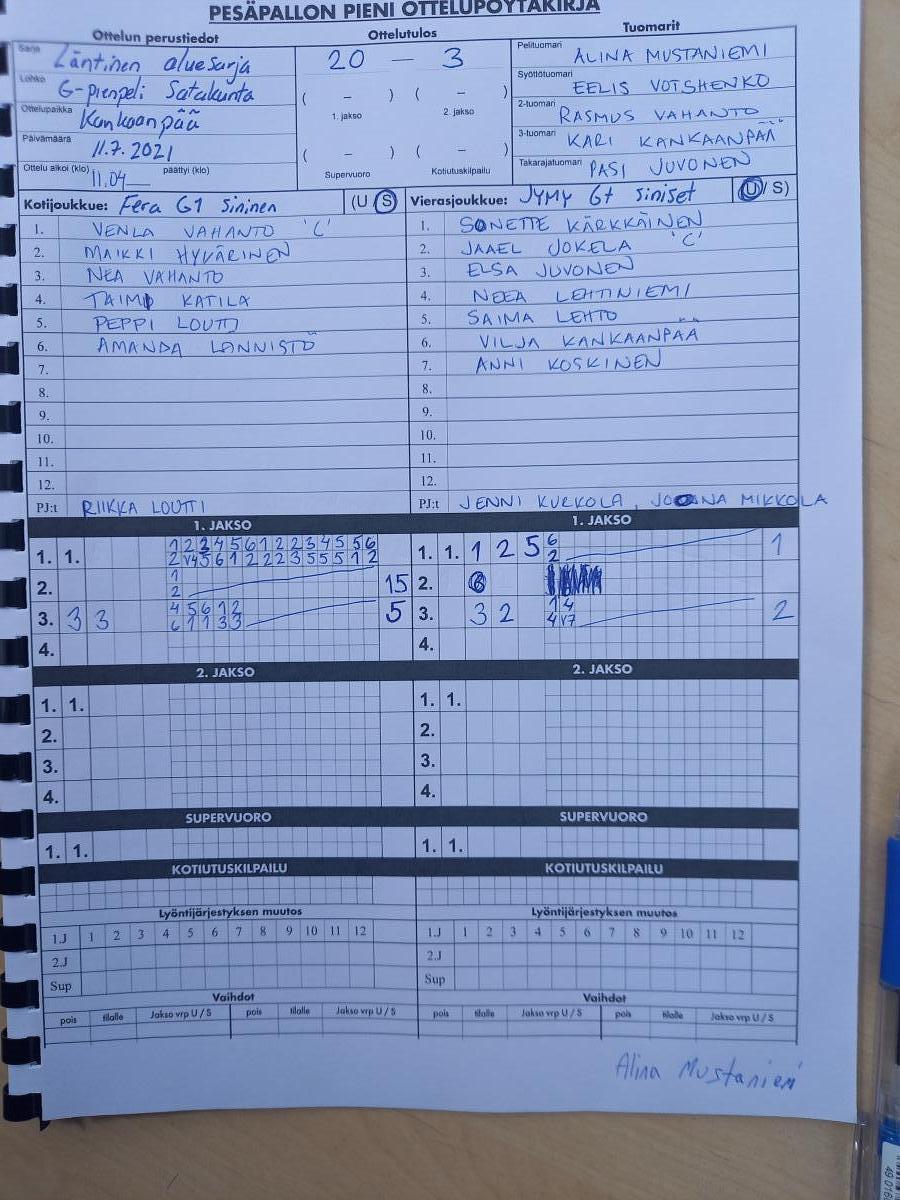 PESÄPALLON PIENI OTTELUPÖYTÄKIRJA
Ottelun perustiedot
Ottelutulos
Tuomarit
Sarja Läntinen aluesarja
Lohko G-pienpeli Satakunta
Ottelupaikka Kankaanpää
Päivämäärä 11.7.2021
Ottelu alkoi (klo) 11.04 päättyi (klo)
20 — 3
( – ) ( – )
1. jakso 2. jakso
( – ) ( – )
Supervuoro Kotiutuskilpailu
Pelituomari ALINA MUSTANIEMI
Syöttötuomari EELIS VOTSHENKO
2-tuomari RASMUS VAHANTO
3-tuomari KARI KANKAANPÄÄ
Takarajatuomari PASI JUVONEN
Kotijoukkue: Fera G1 Sininen (U S)
1. VENLA VAHANTO 'C'
2. MAIKKI HYVÄRINEN
3. NEA VAHANTO
4. TAIMI KATILA
5. PEPPI LOUTTI
6. AMANDA LÖNNISTÖ
7.
8.
9.
10.
11.
12.
PJ:t RIIKKA LOUTTI
Vierasjoukkue: JYMY G+ Siniset (U / S)
1. SONETTE KÄRKKÄINEN
2. JAAEL JOKELA 'C'
3. ELSA JUVONEN
4. NEEA LEHTINIEMI
5. SAIMA LEHTO
6. VILJA KANKAANPÄÄ
7. ANNI KOSKINEN
8.
9.
10.
11.
12.
PJ:t JENNI KURKOLA, JOANA MIKKOLA
1. JAKSO 1. JAKSO
1. 1. 1 2 3 4 5 6 1 2 2 3 4 5 5 6
2 V4 5 6 1 2 2 2 3 5 5 5 1 2
2. 1
2 15
3. 3 3 4 5 6 1 2
6 1 1 3 3 5
4.
1. 1. 1 2 5 6
2 1
2.
3. 3 2 1 4
4 V7 2
4.
2. JAKSO 2. JAKSO
1. 1. 1. 1.
2. 2.
3. 3.
4. 4.
SUPERVUORO SUPERVUORO
1. 1. 1. 1.
KOTIUTUSKILPAILU KOTIUTUSKILPAILU
Lyöntijärjestyksen muutos Lyöntijärjestyksen muutos
1.J 1 2 3 4 5 6 7 8 9 10 11 12 1.J 1 2 3 4 5 6 7 8 9 10 11 12
2.J 2.J
Sup Sup
Vaihdot Vaihdot
pois tilalle Jakso vrp U / S pois tilalle Jakso vrp U / S pois tilalle Jakso vrp U / S pois tilalle Jakso vrp U / S
Alina Mustaniemi